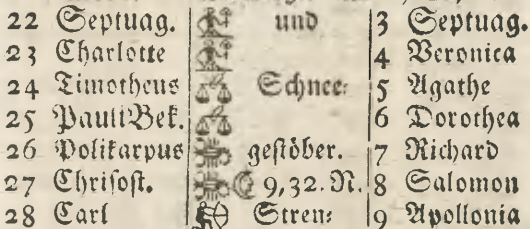 22 Septuag. und 3 Septuag.
23 Charlotte 4 Veronica
24 Timotheus Schnee- 5 Agathe
25 Pauli Bek. 6 Dorothea
26 Polikarpus gestöber. 7 Richard
27 Chrisost. ☾ 9,32. N. 8 Salomon
28 Carl Stren- 9 Apollonia